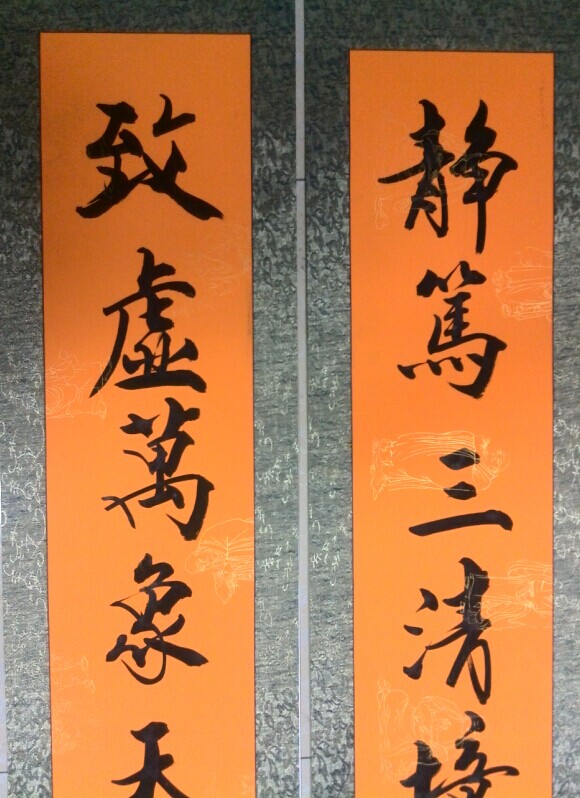 静篤三清境
致虛萬象天